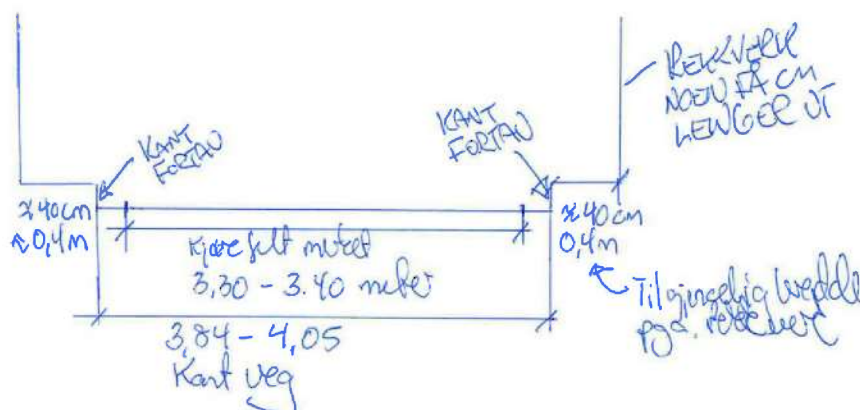 REKKVERK
NOEN FÅ CM
LENGER UT
KANT
FORTAU
KANT
FORTAU
≈40cm
≈0,4m
≈40cm
0,4m
Kjørefelt målet
3,30 - 3.40 meter
Tilgjengelig bredde
pga. rekkverk
3,84 - 4,05
Kant veg